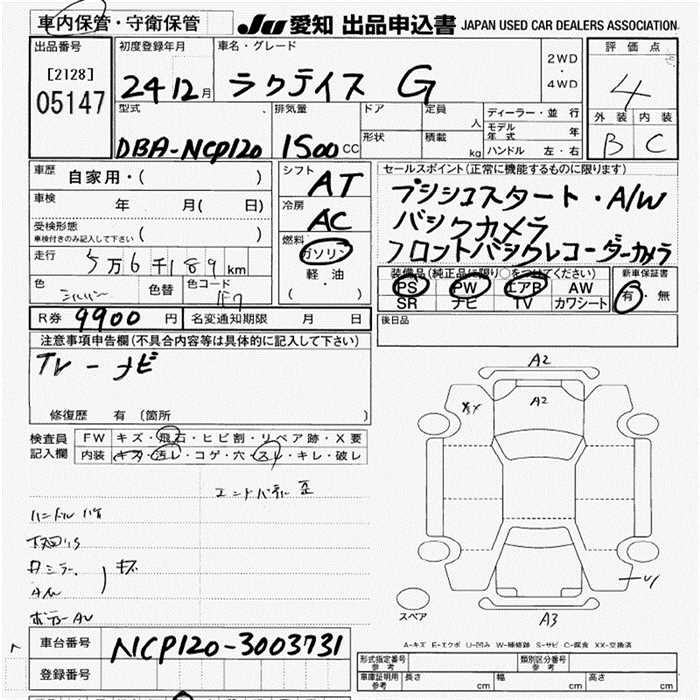 車内保管・守衛保管
JU 愛知 出品申込書 JAPAN USED CAR DEALERS ASSOCIATION.
出品番号
[2128]
05147
初度登録年月
24 12 月
車名・グレード
ラクテイス G
2WD
・
4WD
評価点
4
外装 内装
B C
型式
DBA-NCP120
排気量
1500 CC
ドア
形状
定員
人
積載
kg
ディーラー・並行
モデル年式 年
ハンドル 左・右
車歴 自家用・( )
車検 年 月( 日)
受検形態
車検付きのみ記入して下さい ( )
走行 5万6千189 km
色 シルバー 色替 色コード 1F7
シフト AT
冷房 AC
燃料
ガソリン
軽・油
( )
セールスポイント(正常に機能するものに限ります)
プシシュスタート・A/W
バシクカメラ
フロントバシクレコーダーカメラ
装備品(純正品に限り○をつけてください)
PS PW エアB AW
SR ナビ TV カワシート
新車保証書
有・無
R券 9900 円 名変通知期限 月 日
後日品
注意事項申告欄(不具合内容等は具体的に記入して下さい)
TV ー ナビ
修復歴 有 (箇所 )
検査員
記入欄
FW キズ・飛石・ヒビ割・リペア跡・X要
内装 キズ・汚レ・コゲ・穴・スレ・キレ・破レ
ハンドル
キズ
A/W
A2
A2
A3
スペア
A-キズ E-エクボ U-凹み W-補修跡 S-サビ C-腐食 XX-交換済
車台番号 NCP120-3003731
登録番号
形式指定番号
参考
類別区分番号
参考
車庫証明用
参考
長さ cm 幅 cm 高さ cm